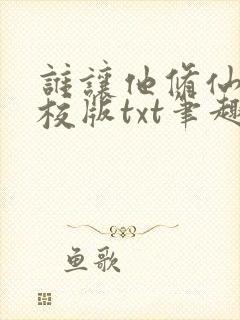 誰讓他脩仙
校版txt筆趣
鱼歌